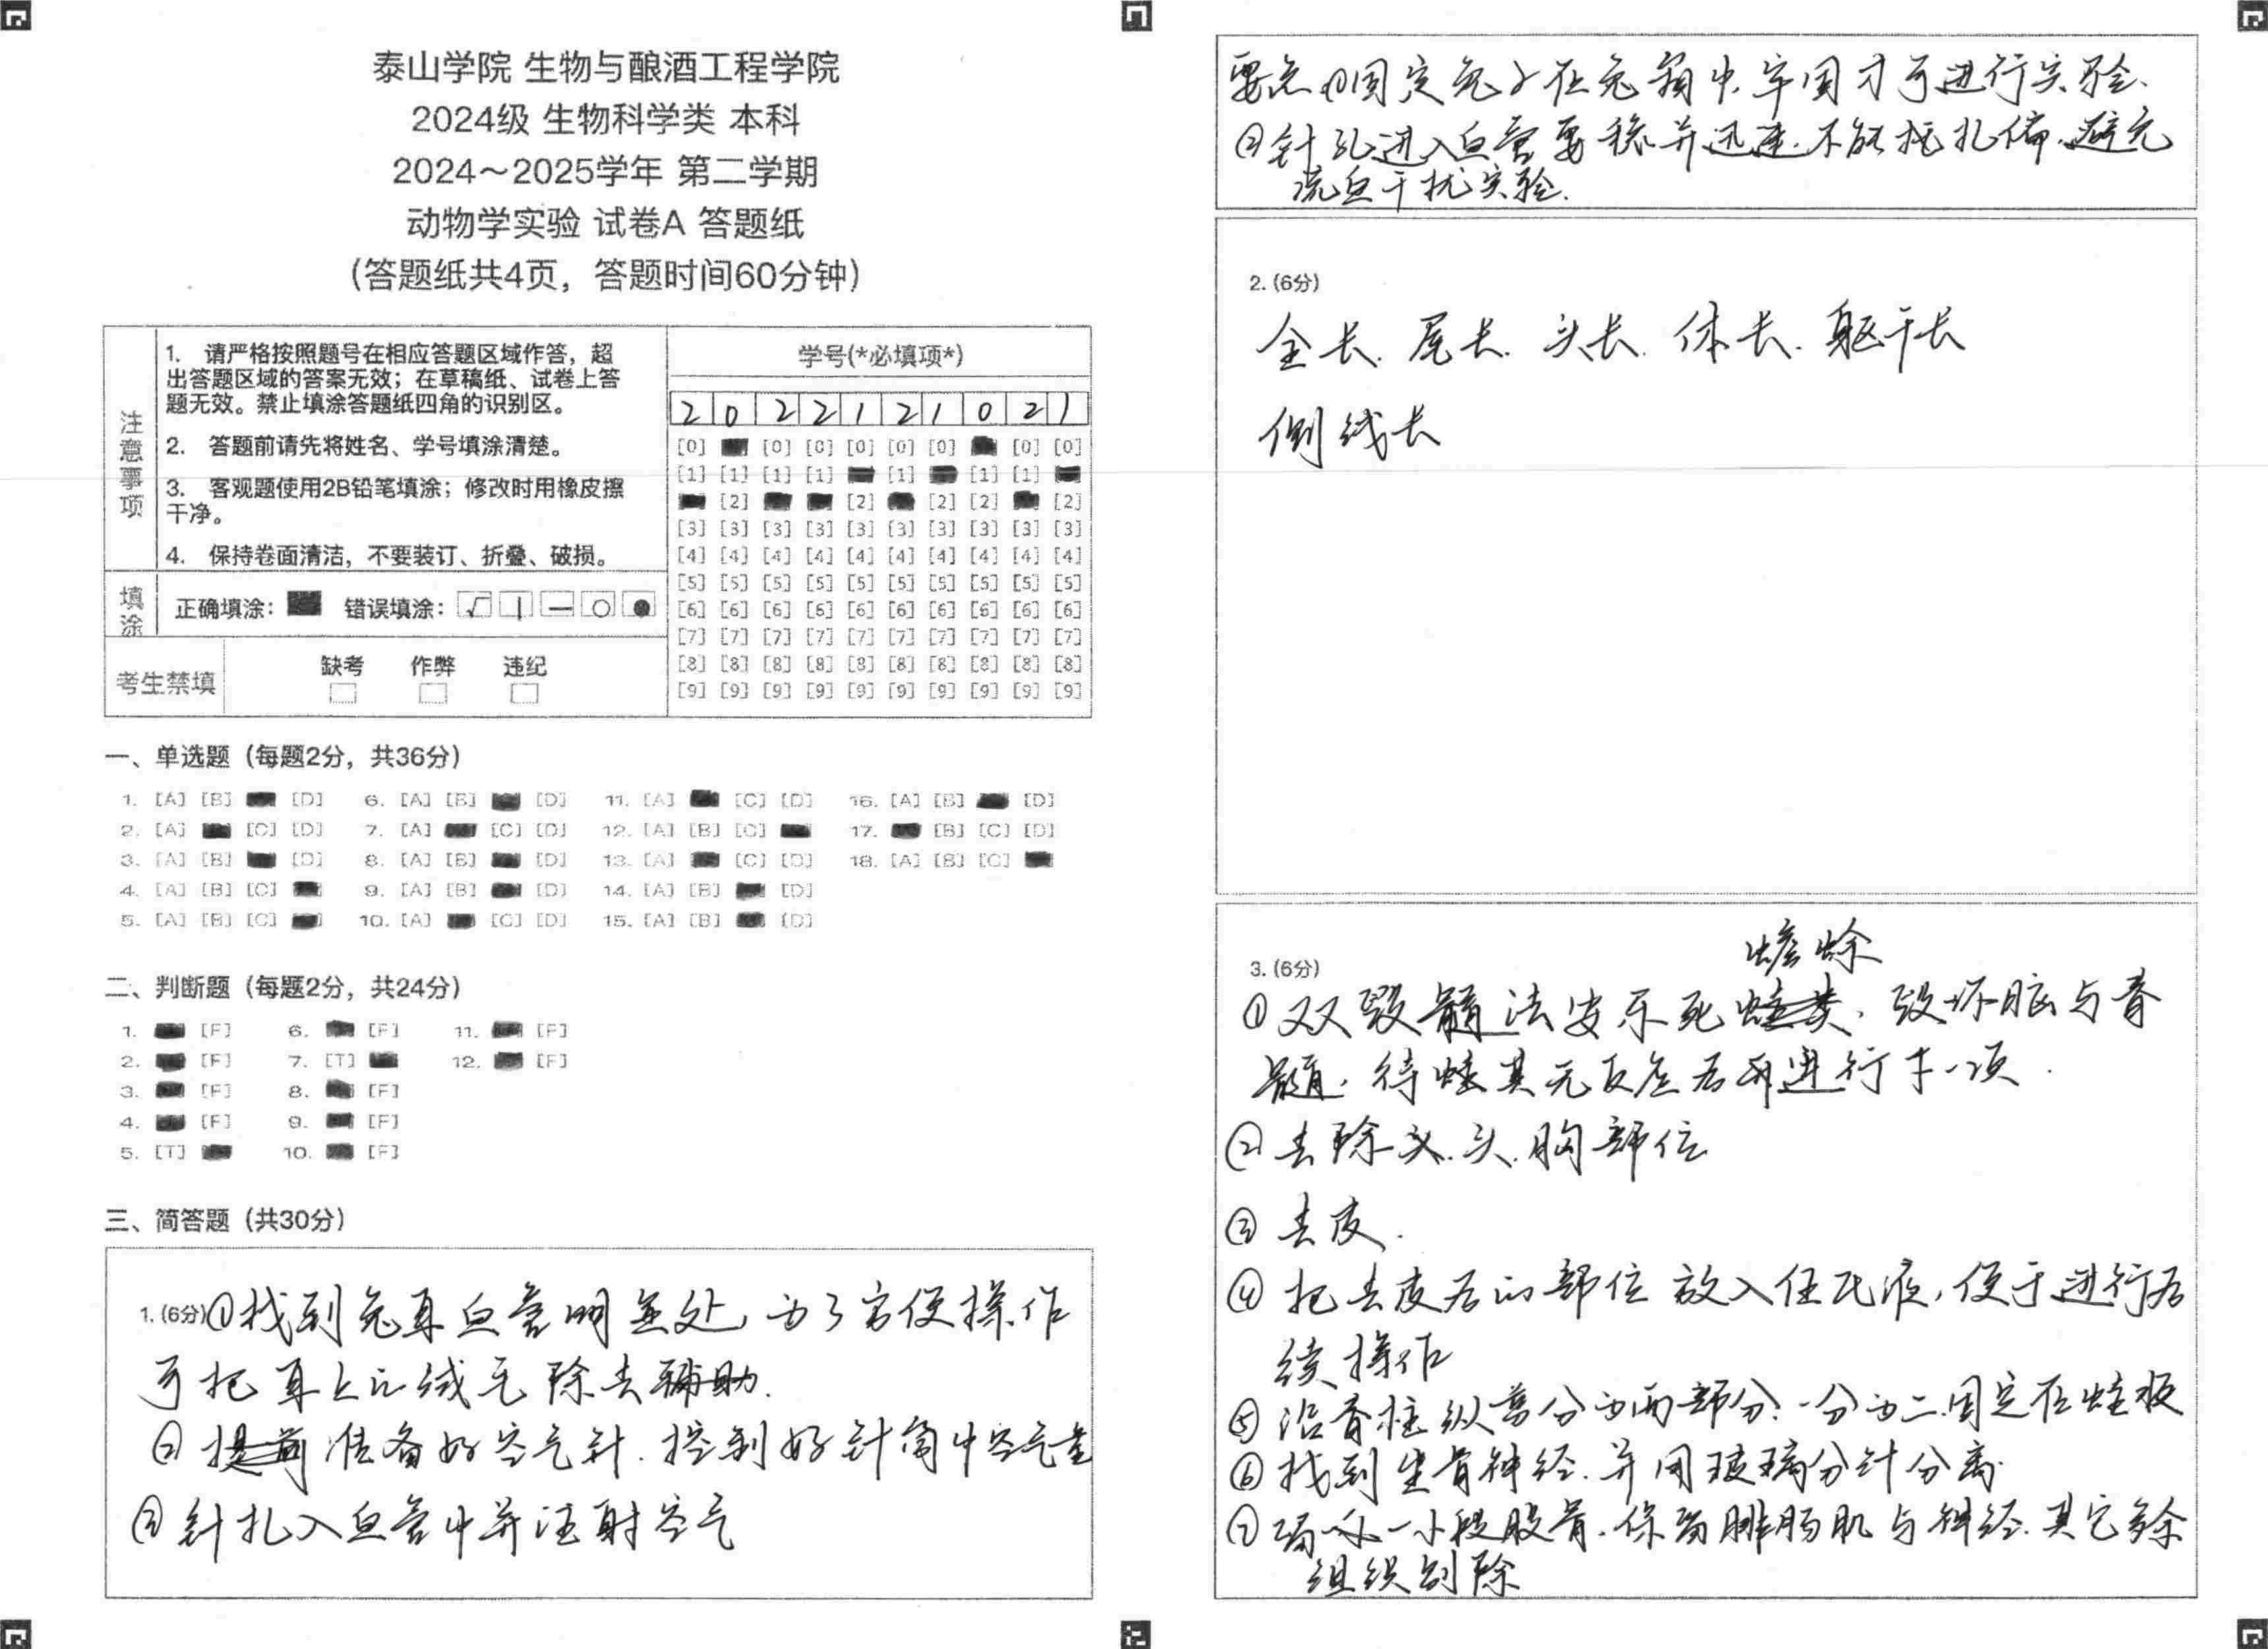 泰山学院 生物与酿酒工程学院
2024级 生物科学类 本科
2024～2025学年 第二学期
动物学实验 试卷A 答题纸
(答题纸共4页，答题时间60分钟)
注意事项
1. 请严格按照题号在相应答题区域作答，超
出答题区域的答案无效；在草稿纸、试卷上答
题无效。禁止填涂答题纸四角的识别区。
2. 答题前请先将姓名、学号填涂清楚。
3. 客观题使用2B铅笔填涂；修改时用橡皮擦
干净。
4. 保持卷面清洁，不要装订、折叠、破损。
填涂
正确填涂： 错误填涂：
考生禁填
缺考 作弊 违纪
学号(*必填项*)
2 0 2 2 1 2 1 0 2 1
[0] [0] [0] [0] [0] [0] [0] [0]
[1] [1] [1] [1] [1] [1] [1]
[2] [2] [2] [2] [2]
[3] [3] [3] [3] [3] [3] [3] [3] [3] [3]
[4] [4] [4] [4] [4] [4] [4] [4] [4] [4]
[5] [5] [5] [5] [5] [5] [5] [5] [5] [5]
[6] [6] [6] [6] [6] [6] [6] [6] [6] [6]
[7] [7] [7] [7] [7] [7] [7] [7] [7] [7]
[8] [8] [8] [8] [8] [8] [8] [8] [8] [8]
[9] [9] [9] [9] [9] [9] [9] [9] [9] [9]
一、单选题（每题2分，共36分）
1. [A] [B] [D] 6. [A] [B] [D] 11. [A] [C] [D] 16. [A] [B] [D]
2. [A] [C] [D] 7. [A] [C] [D] 12. [A] [B] [C] 17. [B] [C] [D]
3. [A] [B] [D] 8. [A] [B] [D] 13. [A] [C] [D] 18. [A] [B] [C]
4. [A] [B] [C] 9. [A] [B] [D] 14. [A] [B] [D]
5. [A] [B] [C] 10. [A] [C] [D] 15. [A] [B] [D]
二、判断题（每题2分，共24分）
1. [F] 6. [F] 11. [F]
2. [F] 7. [T] 12. [F]
3. [F] 8. [F]
4. [F] 9. [F]
5. [T] 10. [F]
三、简答题（共30分）
1. (6分)①找到兔耳血管明显处，为了方便操作
可把耳上的绒毛除去辅助.
② 准备好空气针.控制好针筒中空气量
③ 针扎入血管中并注射空气
要点 ①固定兔子在兔箱中.牢固才可进行实验、
②针孔进入血管要稳并迅速.不能扎偏.避免
流血干扰实验.
2. (6分)
全长、尾长、头长、体长、躯干长
侧线长
3. (6分)
蟾蜍
①双毁髓法安乐死 .毁坏脑与脊
髓，待其无反应后再进行下一项.
②去除头.胸部位
③ 去皮.
④ 把去皮后的部位放入任氏液，便于进行后
续操作
⑤ 沿脊柱纵剪分为两部分.一分为二.固定在蛙板
⑥ 找到坐骨神经.并用玻璃分针分离.
⑦ 一小段股骨.保留腓肠肌与神经.其它多余
组织剔除